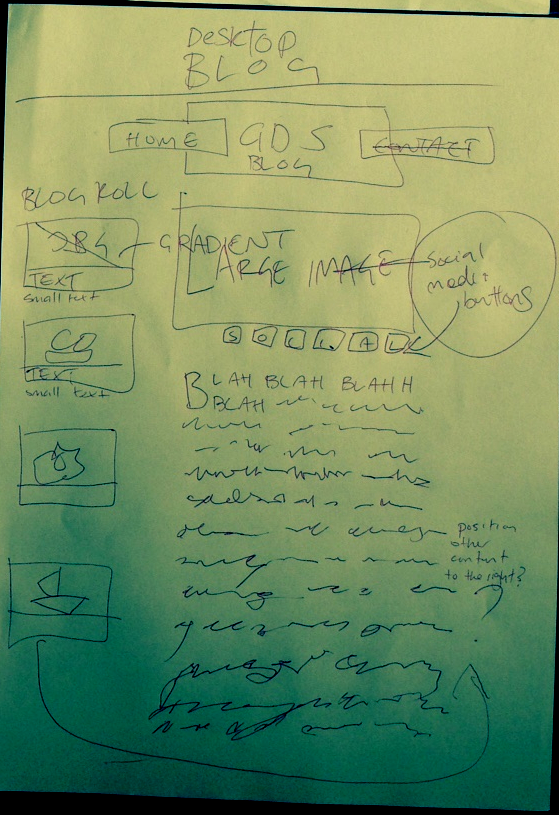 Desktop
BLOG
HOME
GDS
BLOG
CONTACT
BLOG ROLL
GRADIENT
LARGE IMAGE
Social
media
buttons
TEXT
small text
SOCIAL
TEXT
small text
BLAH BLAH BLAHH
BLAH
position
other
content
to the right?